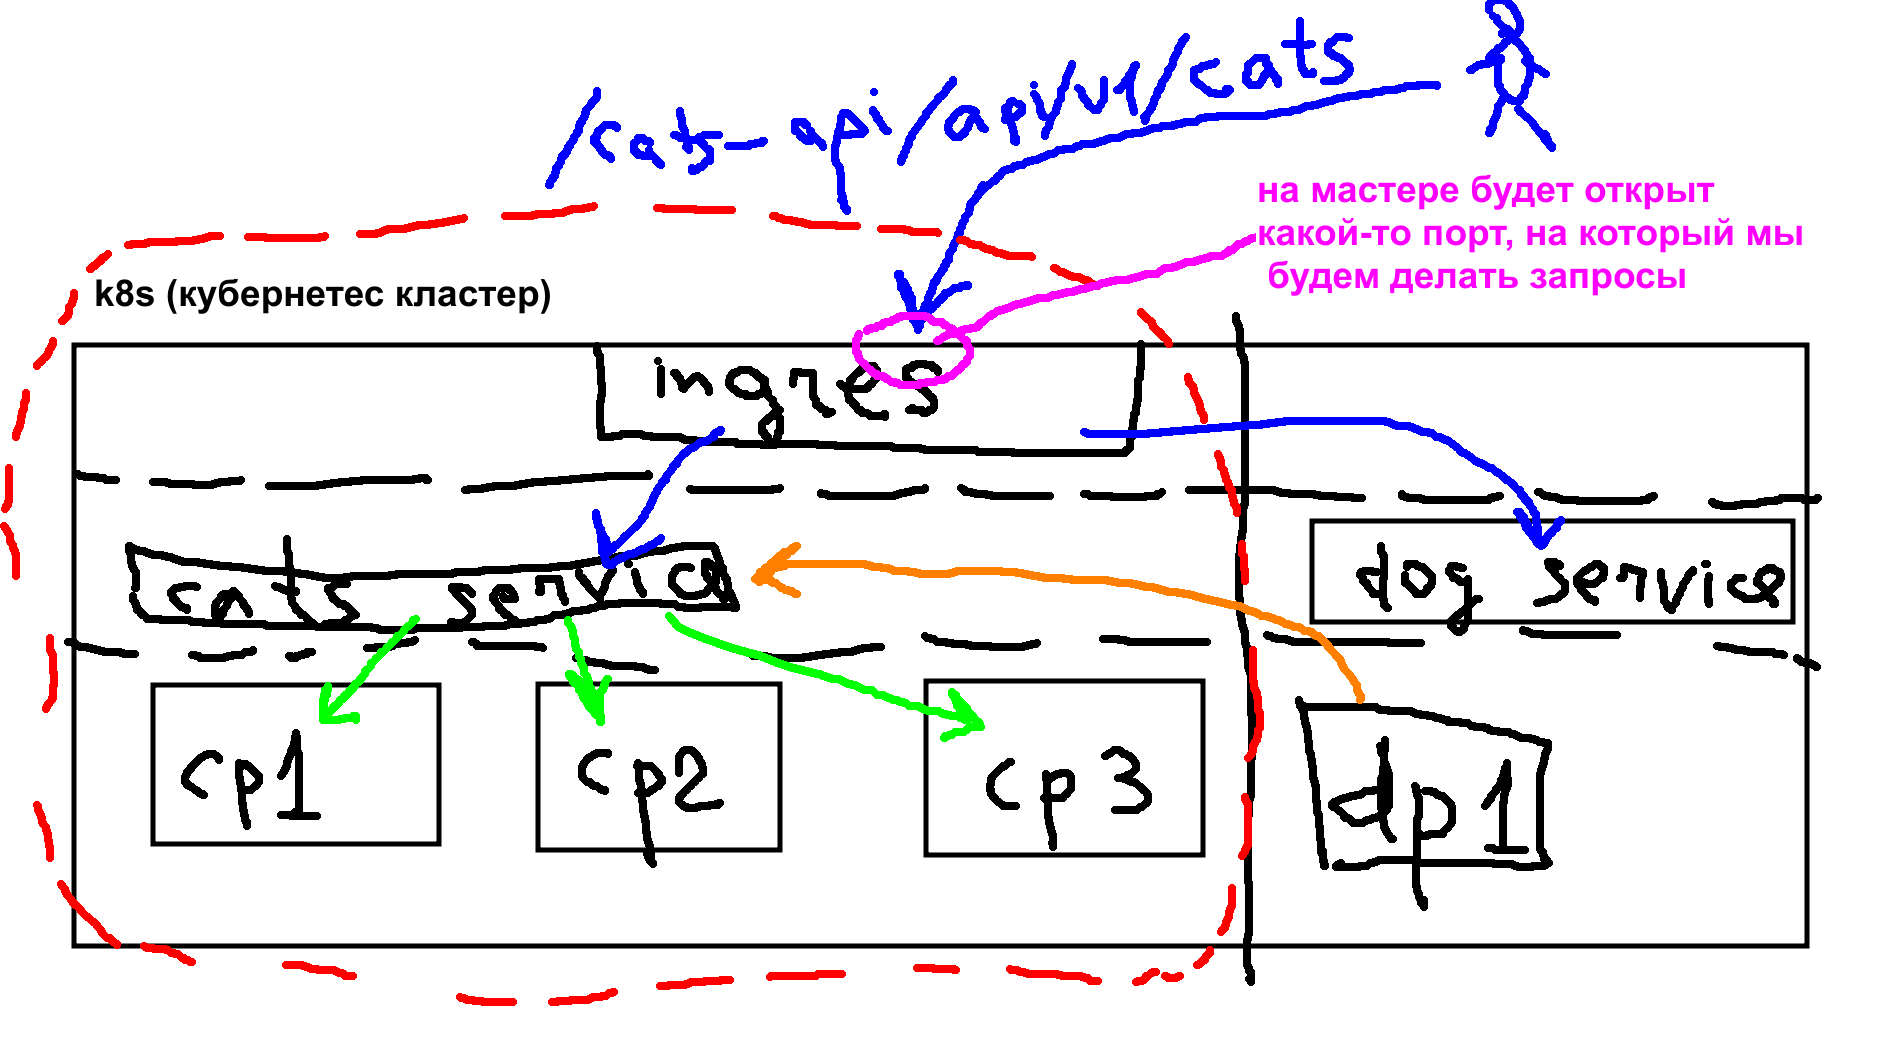 /cats-api/api/v1/cats
на мастере будет открыт
какой-то порт, на который мы
будем делать запросы
k8s (кубернетес кластер)
ingres
cats service
dog service
cp1
cp2
cp3
dp1